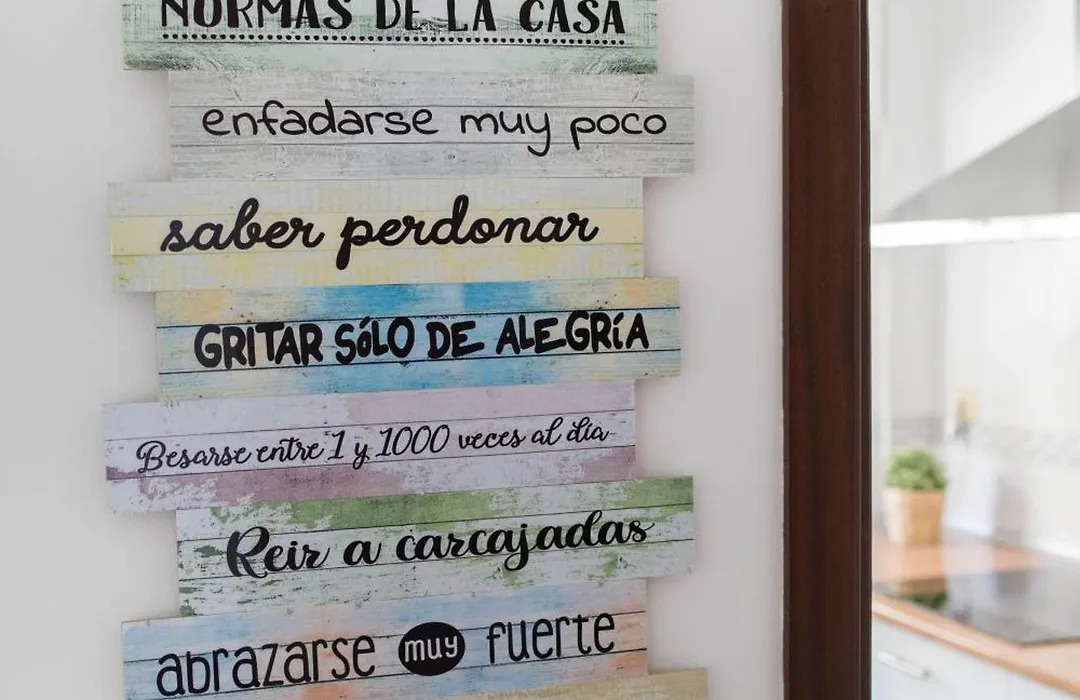 NORMAS DE LA CASA
enfadarse muy poco
saber perdonar
GRITAR SÓLO DE ALEGRÍA
Besarse entre 1 y 1000 veces al día
Reir a carcajadas
abrazarse muy fuerte